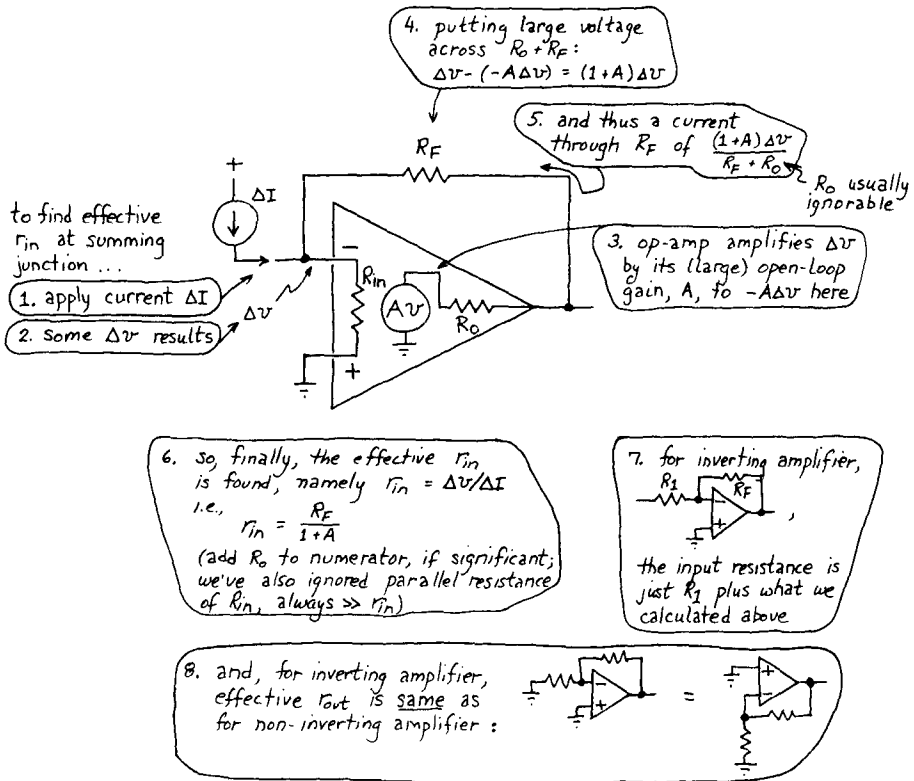 4. putting large voltage
across R₀ + R_F :
Δv - (-AΔv) = (1+A) Δv
5. and thus a current
through R_F of (1+A) Δv / R_F + R₀
R₀ usually
ignorable
R_F
+
ΔI
to find effective
r_in at summing
junction ...
1. apply current ΔI
2. some Δv results
Δv
−
R_in
+
Av
R₀
3. op-amp amplifies Δv
by its (large) open-loop
gain, A, to -AΔv here
6. so, finally, the effective r_in
is found, namely r_in = Δv/ΔI
i.e.,
r_in = R_F / 1+A
(add R₀ to numerator, if significant;
we've also ignored parallel resistance
of R_in, always >> r_in)
7. for inverting amplifier,
R₁
R_F
−
+
,
the input resistance is
just R₁ plus what we
calculated above
8. and, for inverting amplifier,
effective r_out is same as
for non-inverting amplifier :
−
+
=
+
−